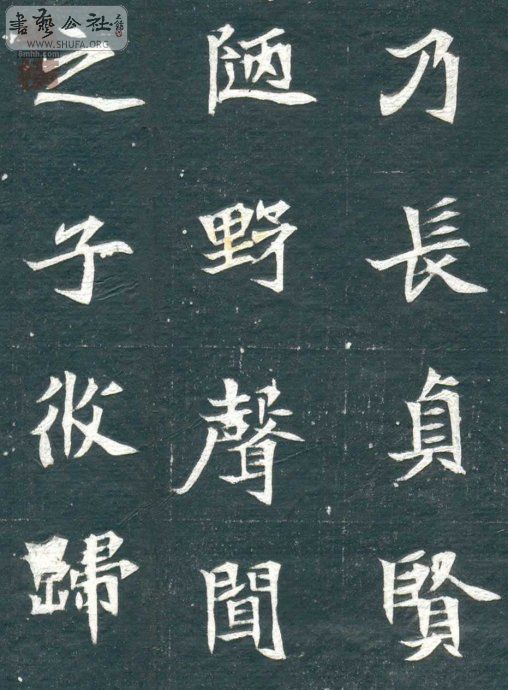 乃長貞賢
陋野聲聞
之子攸歸
書藝公社
WWW.SHUFA.ORG
8mhh.com